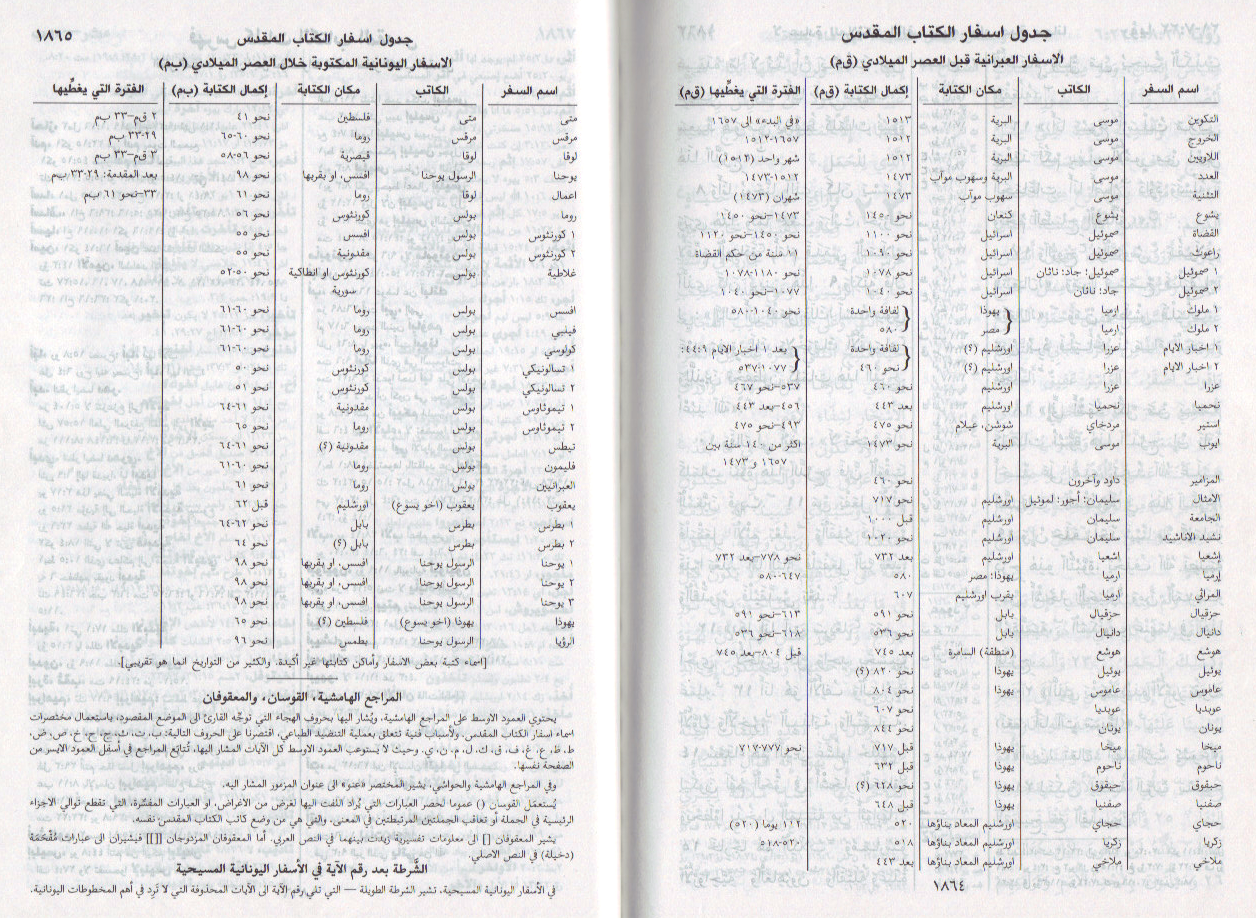 جدول اسفار الكتاب المقدس
الاسفار العبرانية قبل العصر الميلادي (ق‌م)
اسم السفر الكاتب مكان الكتابة إكمال الكتابة (ق‌م) الفترة التي يغطِّيها (ق‌م)
التكوين موسى البرية ١٥١٣ «في البدء» الى ١٦٥٧
الخروج موسى البرية ١٥١٢ ١٦٥٧-١٥١٢
اللاويين موسى البرية ١٥١٢ شهر واحد (١٥١٢)
العدد موسى البرية وسهوب موآب ١٤٧٣ ١٥١٢-١٤٧٣
التثنية موسى سهوب موآب ١٤٧٣ شهران (١٤٧٣)
يشوع يشوع كنعان نحو ١٤٥٠ ١٤٧٣–نحو ١٤٥٠
القضاة صموئيل اسرائيل نحو ١١٠٠ نحو ١٤٥٠–نحو ١١٢٠
راعوث صموئيل اسرائيل نحو ١٠٩٠ ١١ سنة من حكم القضاة
١ صموئيل صموئيل؛ جاد؛ ناثان اسرائيل نحو ١٠٧٨ نحو ١١٨٠-١٠٧٨
٢ صموئيل جاد؛ ناثان اسرائيل نحو ١٠٤٠ ١٠٧٧–نحو ١٠٤٠
١ ملوك ارميا يهوذا لفافة واحدة نحو ١٠٤٠-٥٨٠
٢ ملوك ارميا مصر ٥٨٠
١ اخبار الايام عزرا اورشليم (؟) لفافة واحدة بعد ١ اخبار الايام ٩:٤٤:
٢ اخبار الايام عزرا اورشليم (؟) نحو ٤٦٠ ١٠٧٧-٥٣٧
عزرا عزرا اورشليم نحو ٤٦٠ ٥٣٧–نحو ٤٦٧
نحميا نحميا اورشليم بعد ٤٤٣ ٤٥٦–بعد ٤٤٣
استير مردخاي شوشن، عيلام نحو ٤٧٥ ٤٩٣–نحو ٤٧٥
ايوب موسى البرية نحو ١٤٧٣ اكثر من ١٤٠ سنة بين
١٦٥٧ و ١٤٧٣
المزامير داود وآخرون نحو ٤٦٠
الامثال سليمان؛ أجور؛ لموئيل اورشليم نحو ٧١٧
الجامعة سليمان اورشليم قبل ١٠٠٠
نشيد الاناشيد سليمان اورشليم نحو ١٠٢٠
إشعيا اشعيا اورشليم بعد ٧٣٢ نحو ٧٧٨–بعد ٧٣٢
إرميا ارميا يهوذا؛ مصر ٥٨٠ ٦٤٧-٥٨٠
المراثي ارميا بقرب اورشليم ٦٠٧
حزقيال حزقيال بابل نحو ٥٩١ ٦١٣–نحو ٥٩١
دانيال دانيال بابل نحو ٥٣٦ ٦١٨–نحو ٥٣٦
هوشع هوشع (منطقة) السامرة بعد ٧٤٥ قبل ٨٠٤–بعد ٧٤٥
يوئيل يوئيل يهوذا نحو ٨٢٠ (؟)
عاموس عاموس يهوذا نحو ٨٠٤
عوبديا عوبديا نحو ٦٠٧
يونان يونان نحو ٨٤٤
ميخا ميخا يهوذا قبل ٧١٧ نحو ٧٧٧-٧١٧
ناحوم ناحوم يهوذا قبل ٦٣٢
حبقوق حبقوق يهوذا نحو ٦٢٨ (؟)
صفنيا صفنيا يهوذا قبل ٦٤٨
حجاي حجاي اورشليم المعاد بناؤها ٥٢٠ ١١٢ يوما (٥٢٠)
زكريا زكريا اورشليم المعاد بناؤها ٥١٨ ٥٢٠-٥١٨
ملاخي ملاخي اورشليم المعاد بناؤها بعد ٤٤٣
١٨٦٤
١٨٦٥
جدول اسفار الكتاب المقدس
الاسفار اليونانية المكتوبة خلال العصر الميلادي (ب‌م)
اسم السفر الكاتب مكان الكتابة إكمال الكتابة (ب‌م) الفترة التي يغطِّيها
متى متى فلسطين نحو ٤١ ٢ ق‌م–٣٣ ب‌م
مرقس مرقس روما نحو ٦٠-٦٥ ٢٩-٣٣ ب‌م
لوقا لوقا قيصرية نحو ٥٦-٥٨ ٣ ق‌م–٣٣ ب‌م
يوحنا الرسول يوحنا افسس، او بقربها نحو ٩٨ بعد المقدمة: ٢٩-٣٣ ب‌م
اعمال لوقا روما نحو ٦١ ٣٣–نحو ٦١ ب‌م
روما بولس كورنثوس نحو ٥٦
١ كورنثوس بولس افسس نحو ٥٥
٢ كورنثوس بولس مقدونية نحو ٥٥
غلاطية بولس كورنثوس او انطاكية نحو ٥٠-٥٢
سورية
افسس بولس روما نحو ٦٠-٦١
فيلبي بولس روما نحو ٦٠-٦١
كولوسي بولس روما نحو ٦٠-٦١
١ تسالونيكي بولس كورنثوس نحو ٥٠
٢ تسالونيكي بولس كورنثوس نحو ٥١
١ تيموثاوس بولس مقدونية نحو ٦١-٦٤
٢ تيموثاوس بولس روما نحو ٦٥
تيطس بولس مقدونية (؟) نحو ٦١-٦٤
فليمون بولس روما نحو ٦٠-٦١
العبرانيين بولس روما نحو ٦١
يعقوب يعقوب (اخو يسوع) اورشليم قبل ٦٢
١ بطرس بطرس بابل نحو ٦٢-٦٤
٢ بطرس بطرس بابل (؟) نحو ٦٤
١ يوحنا الرسول يوحنا افسس، او بقربها نحو ٩٨
٢ يوحنا الرسول يوحنا افسس، او بقربها نحو ٩٨
٣ يوحنا الرسول يوحنا افسس، او بقربها نحو ٩٨
يهوذا يهوذا (اخو يسوع) فلسطين (؟) نحو ٦٥
الرؤيا الرسول يوحنا بطمس نحو ٩٦
[اسماء كتبة بعض الاسفار وأماكن كتابتها غير أكيدة. والكثير من التواريخ انما هو تقريبي]
المراجع الهامشية، القوسان، والمعقوفان
يحتوي العمود الاوسط على المراجع الهامشية، ويُشار اليها بحروف الهجاء التي توجِّه القارئ الى الموضع المقصود، باستعمال مختصرات
اسماء اسفار الكتاب المقدس. ولأسباب فنية تتعلق بعملية التنضيد الطباعي، اقتصرنا على الحروف التالية: ب، ت، ث، ج، ح، خ، ص، ض،
ط، ظ، ع، غ، ف، ق، ك، ل، م، ن، ي. وحيث لا يستوعب العمود الاوسط كل الآيات المشار اليها، تُتابَع المراجع في أسفل العمود الايسر من
الصفحة نفسها.
وفي المراجع الهامشية والحواشي، يشير المختصر «عنو» الى عنوان المزمور المشار اليه.
يُستعمَل القوسان () عموما لحصر العبارات التي يُراد اللفت اليها لغرض من الاغراض، او العبارات المفسِّرة، التي تقطع توالي الاجزاء
الرئيسية في الجملة أو تعاقب الجملتين المرتبطتين في المعنى، والتي هي من وضع كاتب الكتاب المقدس نفسه.
يشير المعقوفان [] الى معلومات تفسيرية زيدت بينهما في النص العربي. أما المعقوفان المزدوجان [[]] فيشيران الى عبارات مُقحَمَة
(دخيلة) في النص الاصلي.
الشَّرطة بعد رقم الآية في الأسفار اليونانية المسيحية
في الأسفار اليونانية المسيحية، تشير الشرطة الطويلة — التي تلي رقم الآية الى الآيات المحذوفة التي لا تَرِد في أهم المخطوطات اليونانية.